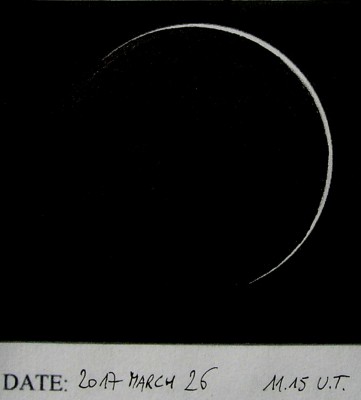 DATE: 2017 MARCH 26 11.15 U.T.